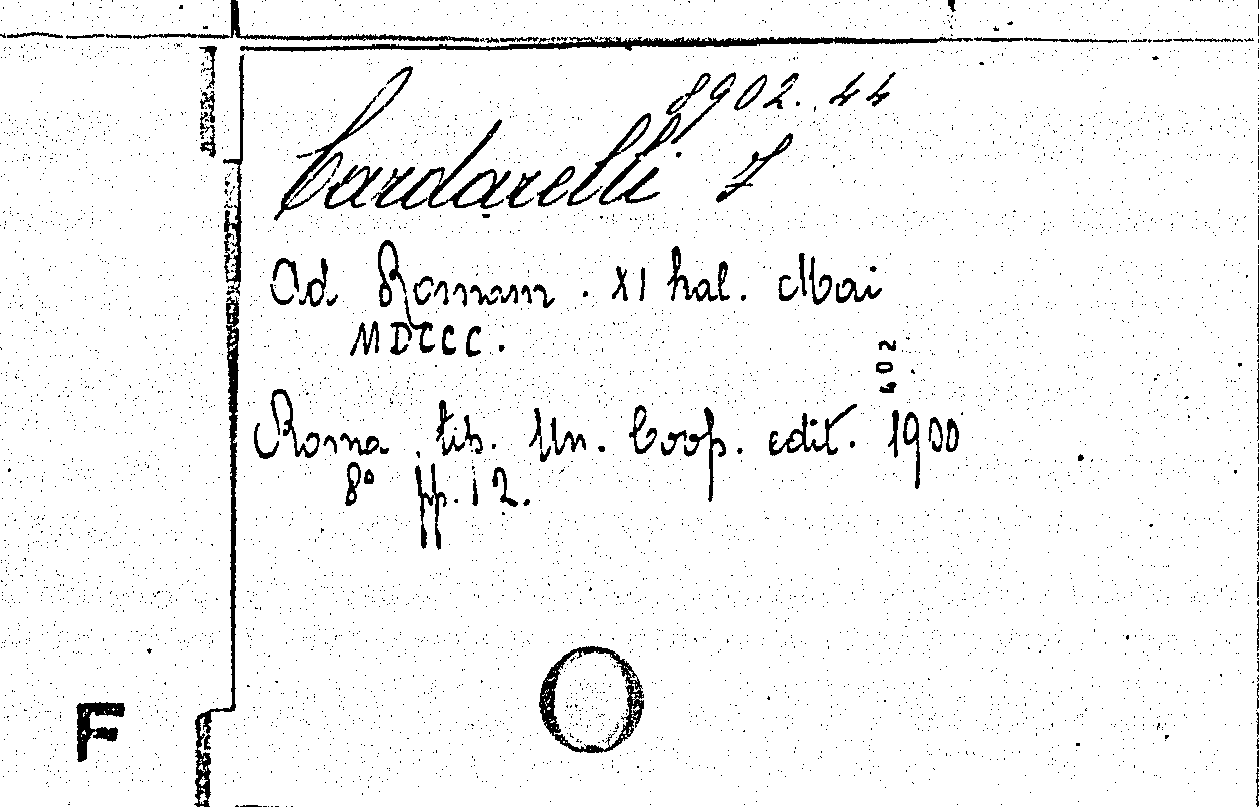 8902.44
Cardarelli I
Ad Romam. XI kal. Mai
MDCCC.
402
Roma. tip. Un. Coop. edit. 1900
8° pp. 12.
F